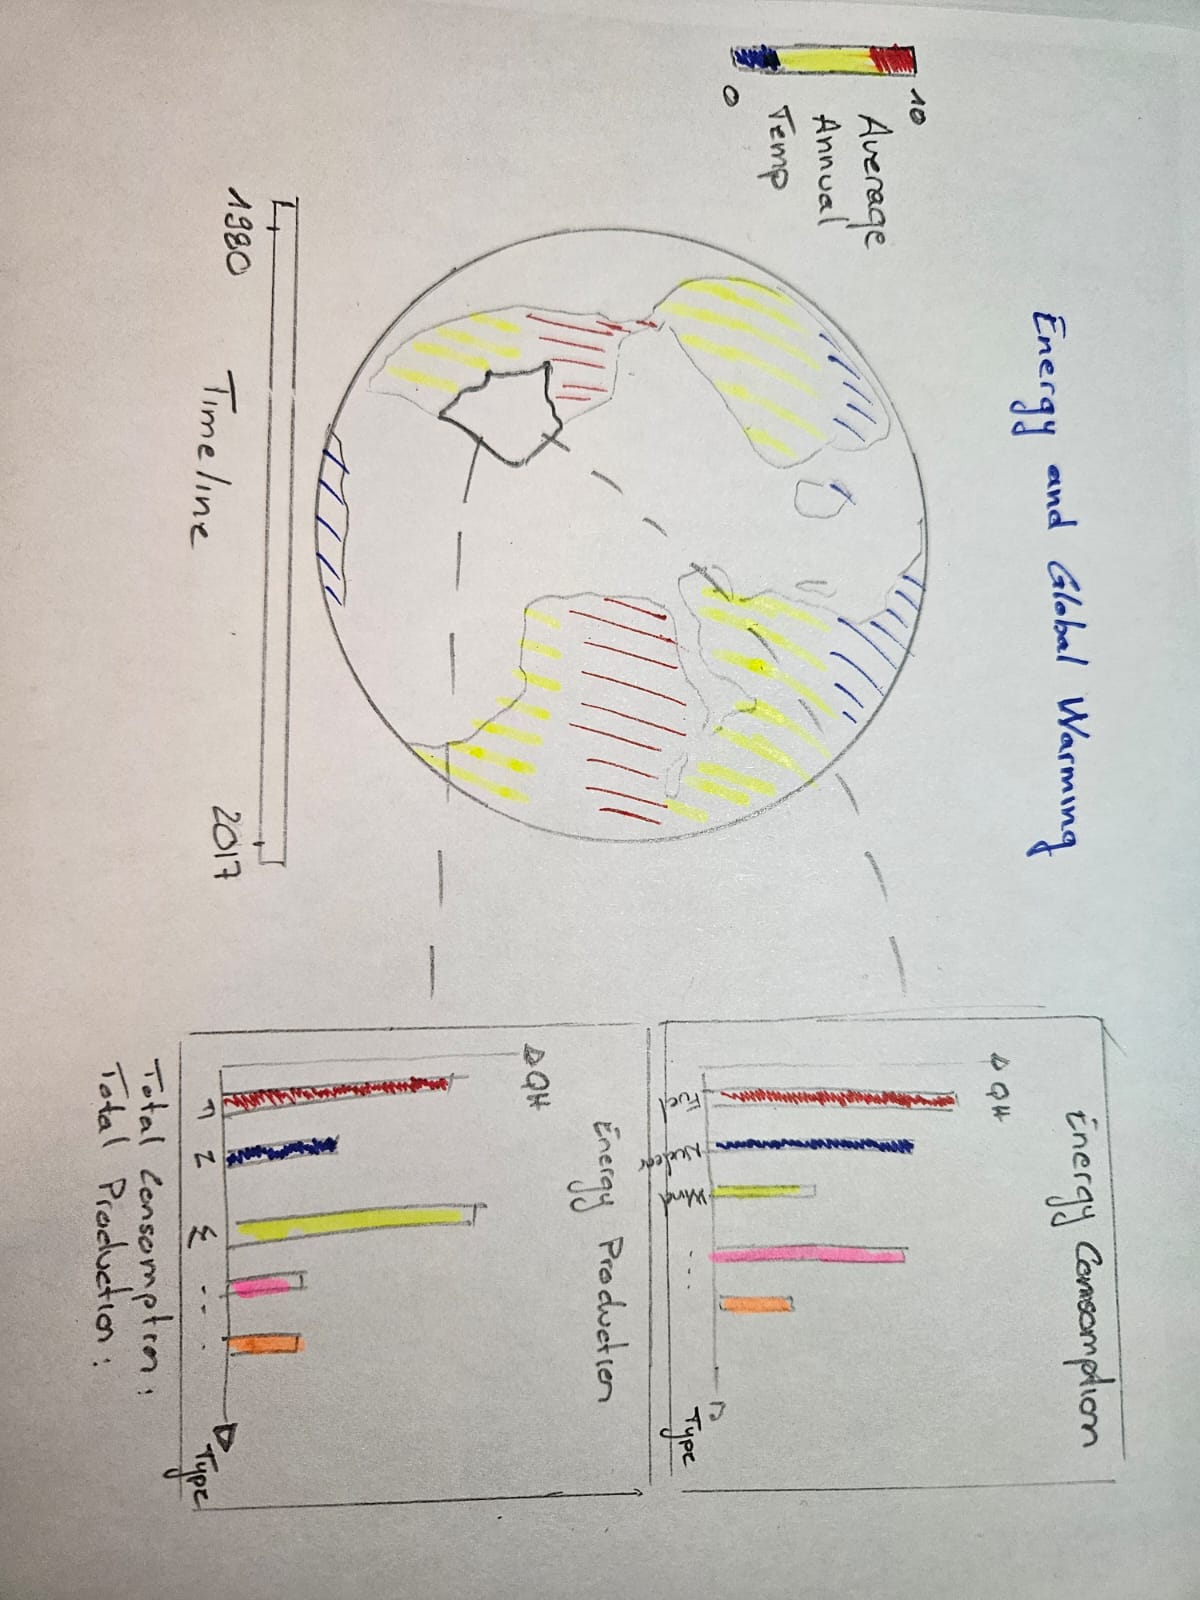 Energy and Global Warming
10
Average
Annual
Temp
0
1980
Timeline
2017
Energy Consomption
QH
...
Type
Energy Production
QH
...
Type
Total Consomption :
Total Production :